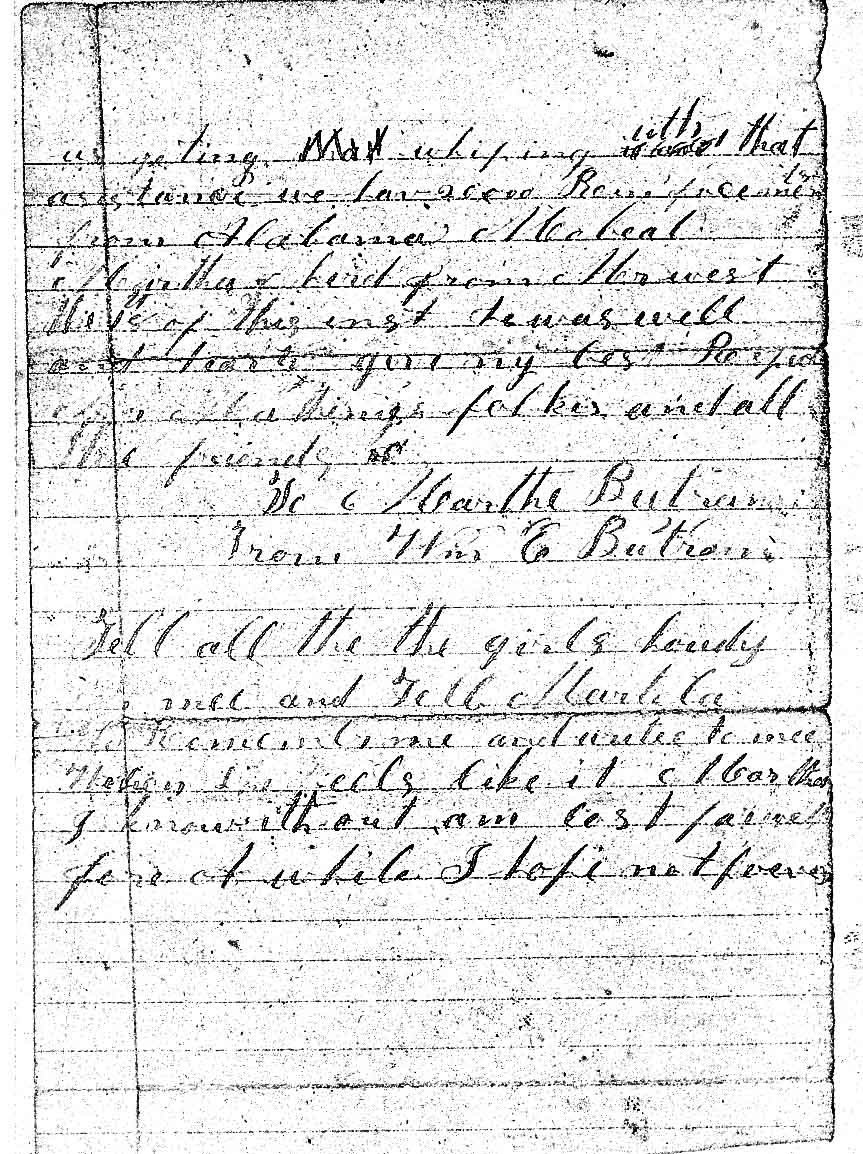 us geting whiping with that
asistance we hav Reinfocemen
from Alabama Mobeal
Martha I herd from Mr west
the 18 of this inst he was well
and hearty give my best
Mathings folkes and all
the friends
To Martha Butram
From Wm E Butram
Tell all the the girls howdy
mee and Tell Martha
to Rememb me and write to mee
When like it Martha
I know without am lost farwell
fore A while I hope not forever